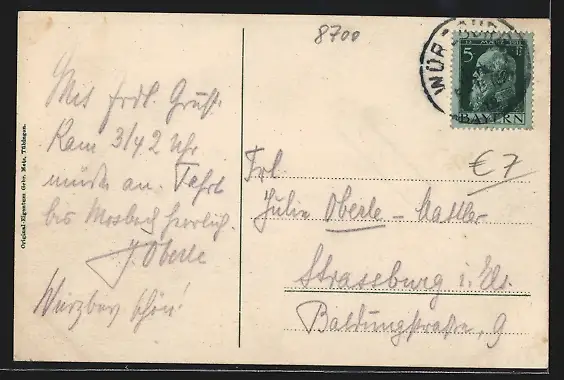 8700
WÜRZBURG
5
BAYERN
€7
Mit frdl. Gruß.
Kam 3/4 2 Uhr
müde an. Fahrt
bis Mosbach herrlich.
J. Oberle
Würzburg schön!
Frl
Julie Oberle - Kattler
Strassburg i. Els.
Baldungstraße, 9
Original-Eigentum Gebr. Metz, Tübingen.